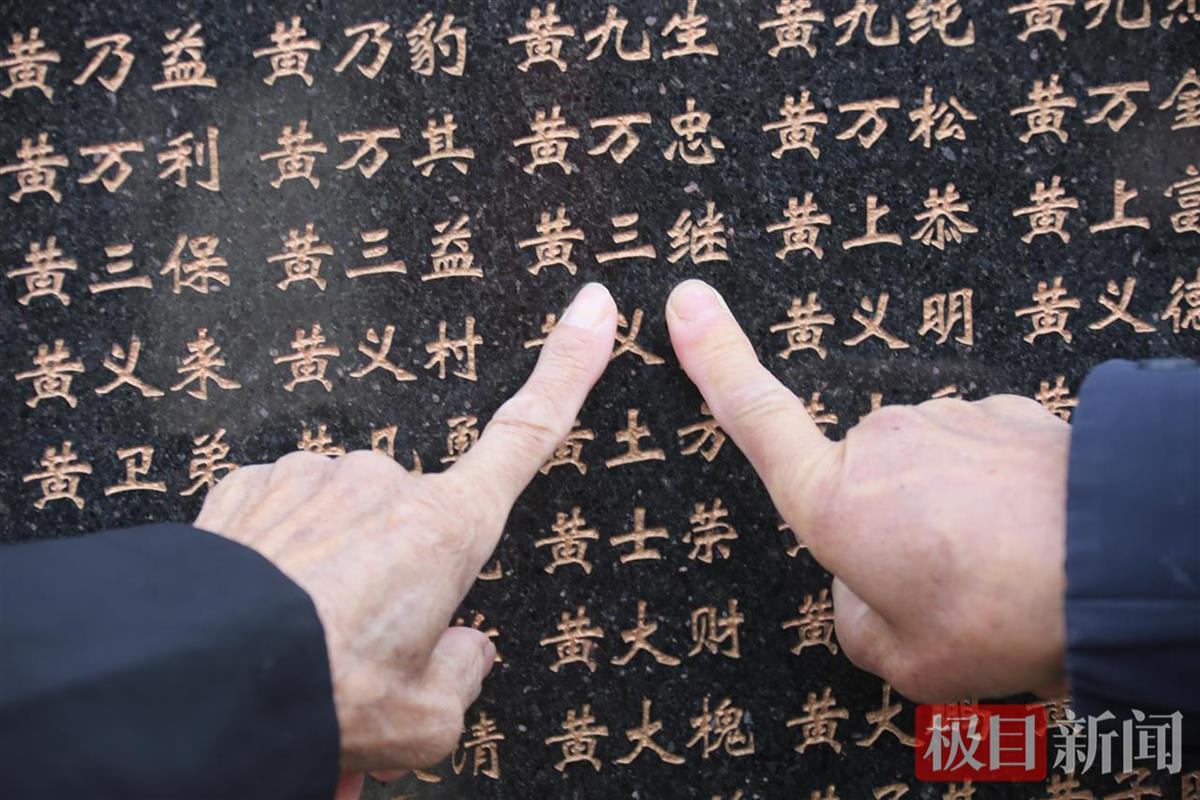 黄乃益 黄乃豹 黄九生 黄九纯 黄九
黄万利 黄万其 黄万忠 黄万松 黄万
黄三保 黄三益 黄三继 黄上恭 黄上富
黄义来 黄义村 黄义 黄义明 黄义德
黄卫弟 黄 勇 黄士芳 黄
黄士荣
黄大财 黄
清 黄大槐 黄大明
极目新闻